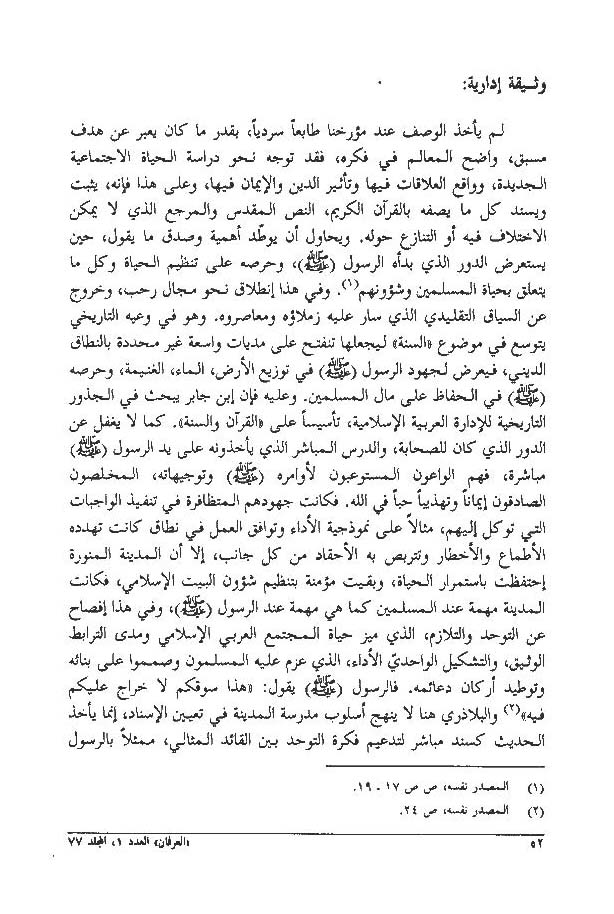 وثيقة إدارية:
لم يأخذ الوصف عند مؤرخنا طابعاً سردياً، بقدر ما كان يعبر عن هدف
مسبق، واضح المعالم في فكره، فقد توجه نحو دراسة الحياة الاجتماعية
الجديدة، وواقع العلاقات فيها وتأثير الدين والإيمان فيها، وعلى هذا فإنه، يثبت
ويسند كل ما يصفه بالقرآن الكريم، النص المقدس والمرجع الذي لا يمكن
الاختلاف فيه أو التنازع حوله. ويحاول أن يوطّد أهمية وصدق ما يقول، حين
يستعرض الدور الذي بدأه الرسول (ﷺ)، وحرصه على تنظيم الحياة وكل ما
يتعلق بحياة المسلمين وشؤونهم(١). وفي هذا إنطلاق نحو مجال رحب، وخروج
عن السياق التقليدي الذي سار عليه زملاؤه ومعاصروه. وهو في وعيه التاريخي
يتوسع في موضوع «السنة» ليجعلها تنفتح على مديات واسعة غير محددة بالنطاق
الديني، فيعرض لجهود الرسول (ﷺ) في توزيع الأرض، الماء، الغنيمة، وحرصه
(ﷺ) في الحفاظ على مال المسلمين. وعليه فإن إبن جابر يبحث في الجذور
التاريخية للإدارة العربية الإسلامية، تأسيساً على «القرآن والسنة». كما لا يغفل عن
الدور الذي كان للصحابة، والدرس المباشر الذي يأخذونه على يد الرسول (ﷺ)
مباشرة، فهم الواعون المستوعبون لأوامره (ﷺ) وتوجيهاته، المخلصون
الصادقون إيماناً وتهذيباً حباً في الله. فكانت جهودهم المتظافرة في تنفيذ الواجبات
التي توكل إليهم، مثالاً على نموذجية الأداء وتوافق العمل في نطاق كانت تهدده
الأطماع والأخطار وتتربص به الأحقاد من كل جانب، إلا أن المدينة المنورة
إحتفظت باستمرار الحياة، وبقيت مؤمنة بتنظيم شؤون البيت الإسلامي، فكانت
المدينة مهمة عند المسلمين كما هي مهمة عند الرسول (ﷺ)، وفي هذا إفصاح
عن التوحد والتلازم، الذي ميز حياة المجتمع العربي الإسلامي ومدى الترابط
الوثيق، والتشكيل الواحديّ الأداء، الذي عزم عليه المسلمون وصمموا على بنائه
وتوطيد أركان دعائمه. فالرسول (ﷺ) يقول: «هذا سوقكم لا خراج عليكم
فيه»(٢) والبلاذري هنا لا ينهج أسلوب مدرسة المدينة في تعيين الإسناد، إنما يأخذ
الحديث كسند مباشر لتدعيم فكرة التوحد بين القائد المثالي، ممثلاً بالرسول
(١) المصدر نفسه، ص ص ١٧ - ١٩.
(٢) المصدر نفسه، ص ٢٤.
٥٢ «العرفان» العدد ١، المجلد ٧٧